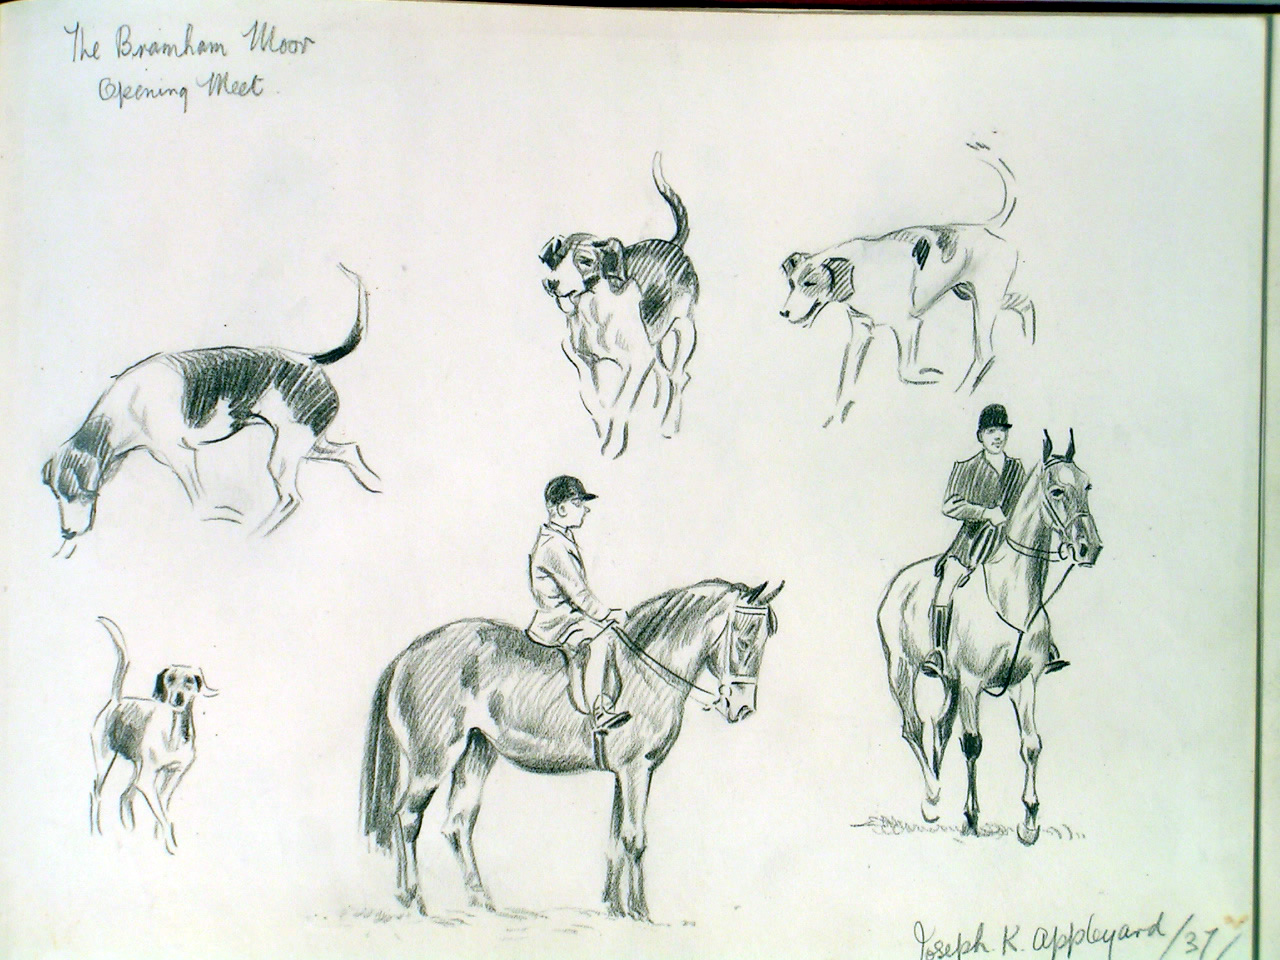 The Bramham Moor
Opening Meet.
Joseph. K. Appleyard /37/